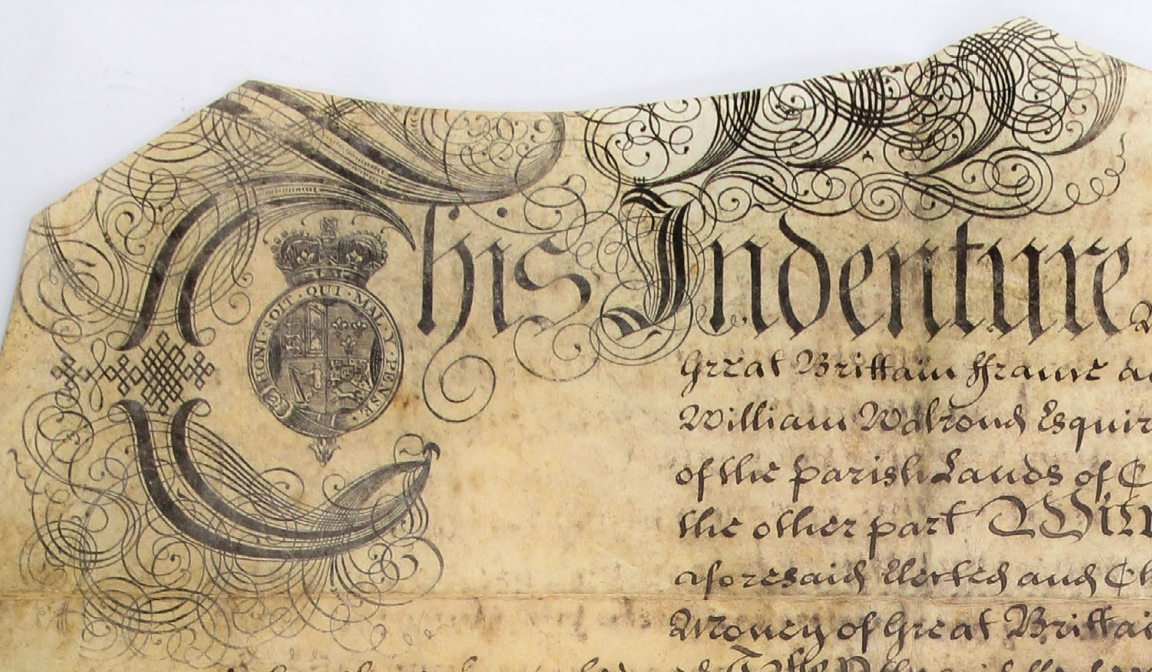 This Indenture
HONI · SOIT · QUI · MAL · Y · PENSE ·
Great Brittain ffrance
William Walrond Esquir
of the Parish Lands of C
the other part Witn
aforesaid Elected and Ch
Money of Great Brittai